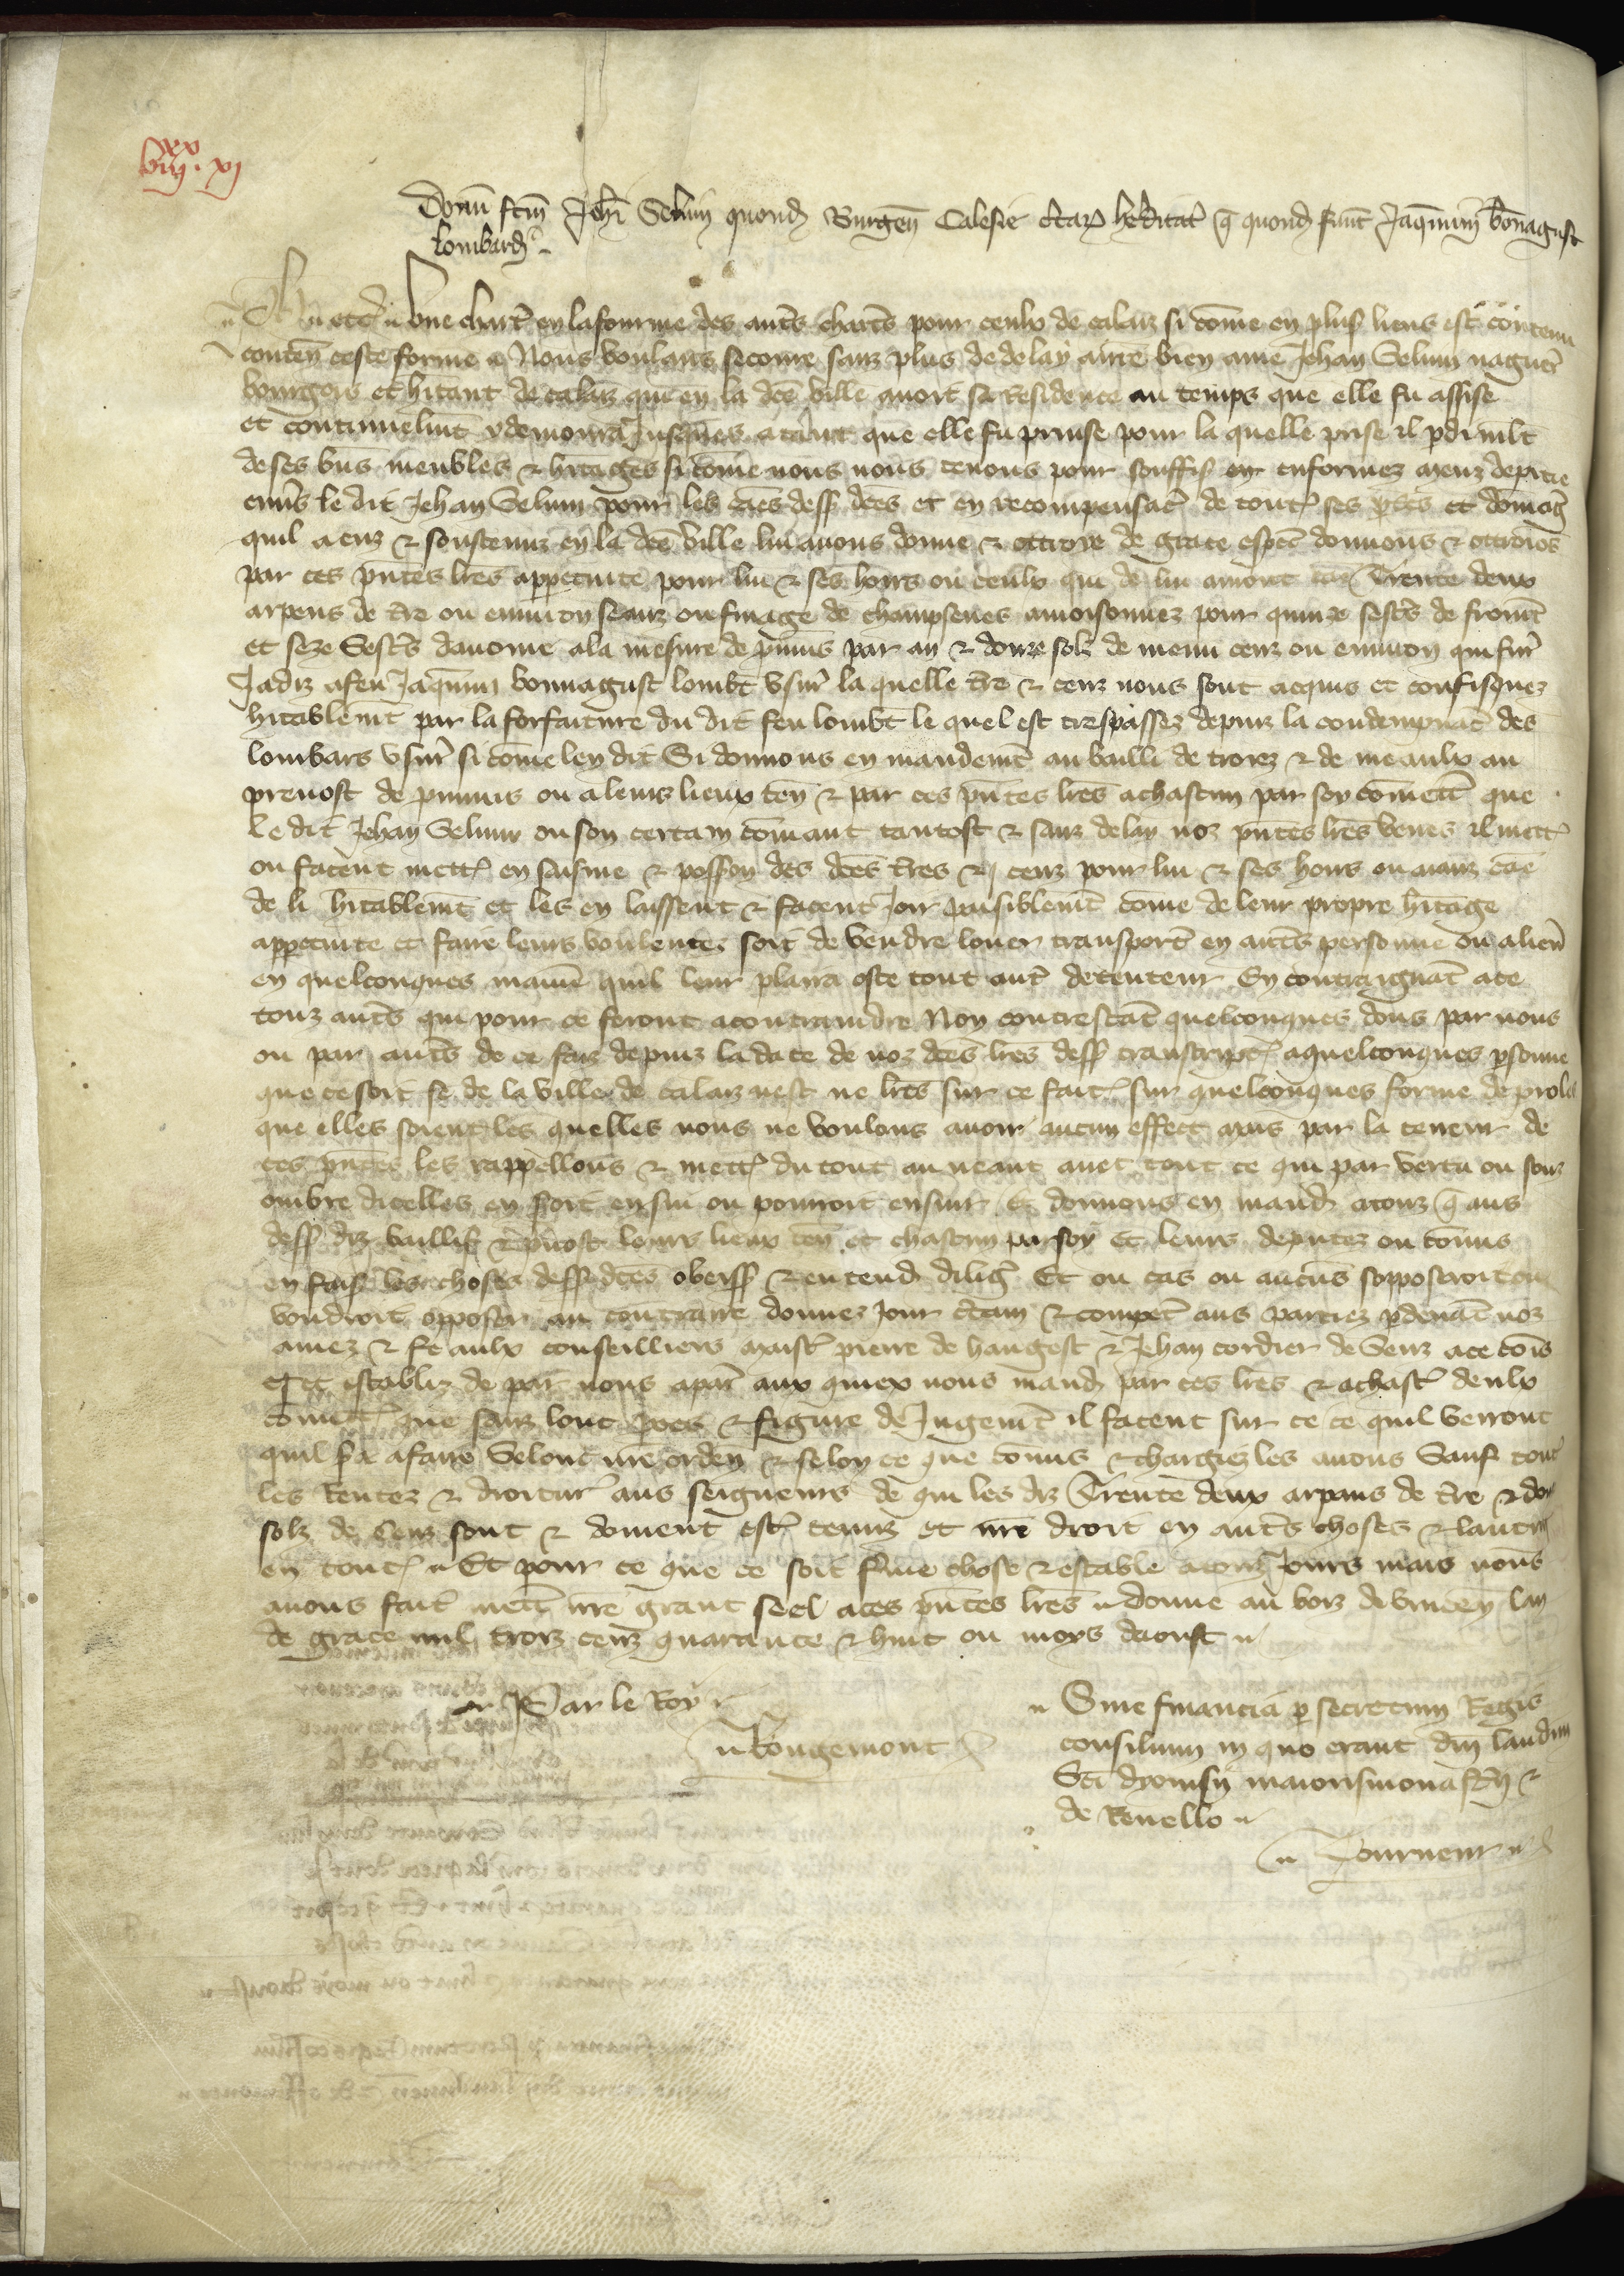 xx
viij . xj
Donũ fcm̃ Joh̃i Selum quond Burgen̄ Calesie certar hereditat q̃ quond fuer̃t Jaqm̃ini bonagust
lombard̃
une chart̃ en la fourme des aut̃s chart̃s pour ceulx de calais si com̃e en plus lieux est contenu
conten̄ ceste forme Nous voulans secourre sanz plus de delay a nr̃e bien ame Jehan Selum nagut̃
bourgois et h̃itant de calais qui en la dc̃e ville avoit sa residence au temps que elle fu assise
et continuelm̃t y demoura jusques atant que elle fu prinse pour la quelle prise il ꝑdi mlt̃
de ses b̃ns meubles & h̃itages si com̃e nous nous tenons pour souffis enformez meuz de pitie
enṽs le dit Jehan Selum pour les c̃aes dess dc̃es et en recompensac̃ de tout ses ꝑtes et domag̃
quil a euz & soustenuz en la dc̃e ville lui avons donne & ottroye de grace esp̃al donnons & ottroiõs
par ces p̃ntes lr̃es a ppetuite pour lui & ses hoirs ou ceulx qui de lui auront cae Trente deux
arpens de t̃re ou environ seanz ou finage de champsenes amoisonnez pour quinze sest̃s de from̃t
et seze Sest̃s davoine a la mesure de p̃vins par an & douze solz de menu cenz ou environ qui fur̃
Jadiz a feu Jaqm̃in bonnagust lomb̃t usur̃ la quelle t̃re & cenz nous sont acquis et confisquez
h̃itablem̃t par la forfaiture du dit feu lomb̃t le quel est trespassez depuiz la condempnac̃ des
lombars usur̃ si com̃e len dit Si donnons en mandem̃t au bailli de troies & de meaulx au
prevost de provins ou a leurs lieux ten̄ & par ces p̃ntes lr̃es a chascun par soy com̃ett̃ que
le dit Jehan Selum ou son certain com̃ant tantost & sanz delay noz p̃ntes lr̃es veues il mett̃
ou facent mett̃ en saisine & poss̃on des dc̃es t̃res & cenz pour lui & ses hoirs ou aianz cae
de li h̃itablem̃t et les en laissent & facent joir paisiblem̃t com̃e de leur propre h̃itage
a ppetuite et faire leurs voulentez soit de vendre louer transport̃ en aut̃s personne ou alien̄
en quelconques manie quil leur plaira oste tout aut̃ detenteur En contraignãt a ce
touz aut̃s qui pour ce seront a contraindre Non contrestãt quelconques dons par nous
ou par aut̃s de ce faiz depuiz la date de noz dc̃es lr̃es dess transcript̃ a quelconques ꝑsonne
que ce soit se de la ville de calais nest ne lr̃es sur ce fait sur quelconques forme de parole
que elles soient les quelles nous ne voulons avoir aucun effect mais par la teneur de
ces p̃ntes les rappellons & mett̃ du tout au neant avec tout ce qui par vertu ou souz
ombre dicelles en soit ensui ou pourroit ensuir Et donnons en mand̃ a touz q̃ aus
dess diz baillis & p̃vost leurs lieux ten̄ et chascun par soy et leurs deputez ou com̃is
en fais les choses dess dc̃es obeiss & entend̃ dilig̃ Et ou cas ou aucũs sopposeroit ou
voudroit opposer au contraire donnez jour c̃tain & compet̃ aus parties ꝑdevãt noz
amez & feaulx conseilliers maist̃ pierre de hangest & Jehan cordier de Senz a ce com̃is
et establiz de par nous a paris aux quiex nous mand̃ par ces lr̃es & a chast̃ deulx
com̃ett̃ que sanz lonc p̃ces & figure de jugem̃t il facent sur ce ce quil verront
quil sera a faire Selonc nr̃e orden̄ & selon ce que com̃is & chargiez les avons Sauf tout̃
les Rentes & droitur̃ aus seigneurs de qui les diz Trente deux arpans de t̃re & dou
solz de Cenz sont & doivent est̃ tenuz et nr̃e droit en aut̃s choses & lautrui
en tout̃ Et pour ce que ce soit ferme chose & estable a touz jours mais nous
avons fait mett̃ nr̃e grant seel a ces p̃ntes lr̃es donne au bois de vincen̄ lan
de grace mil trois cenz quarante & huit ou moys daoust
Par le Roy
Rougemont
Sine financia ꝑ secretum Regis
consilium in quo erant dñi laudun̄
Sci dyonisij maiorismonast̃ij &
de Revello
Tourneur